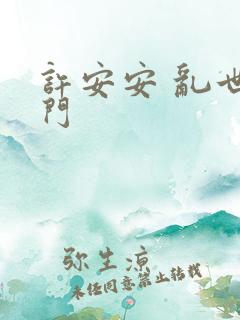 許安安 亂世
門
弥生凉
未经同意禁止转载